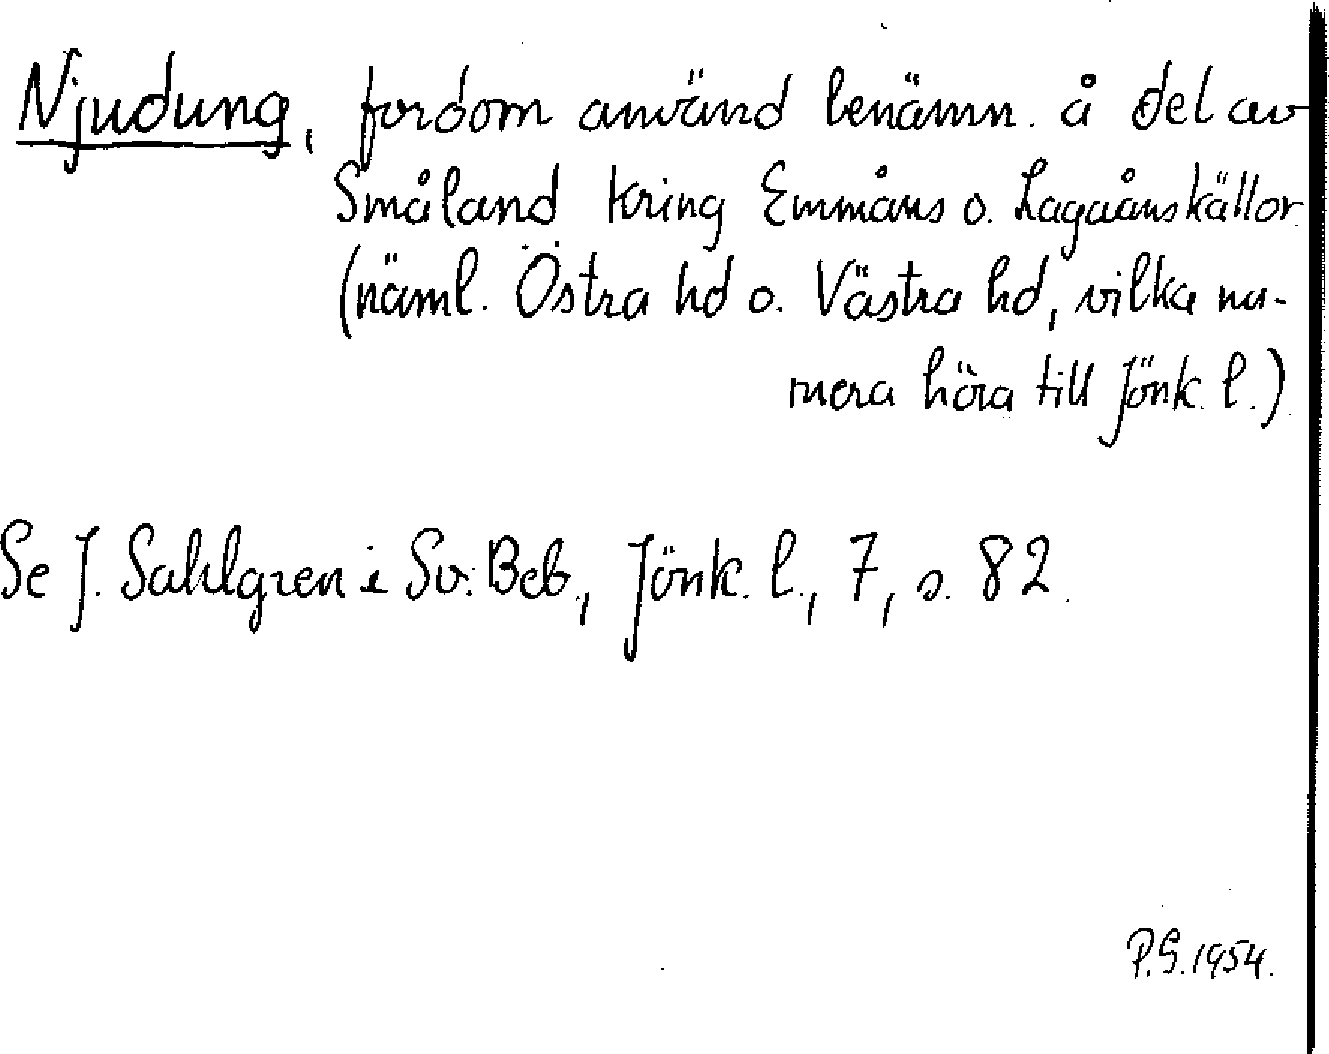 Njudung, fordom använd benämn. å del av
Småland kring Emmåns o. Lagaåns källor
(näml. Östra hd o. Västra hd, vilka nu-
mera höra till Jönk. l.)
Se J. Sahlgren i Sv. Beb., Jönk. l., 7, s. 82.
P.G. 1954.